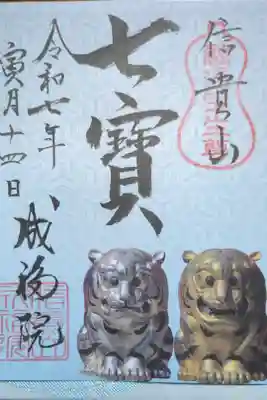 信貴山
七寳
令和七年
寅月十四日
成福院